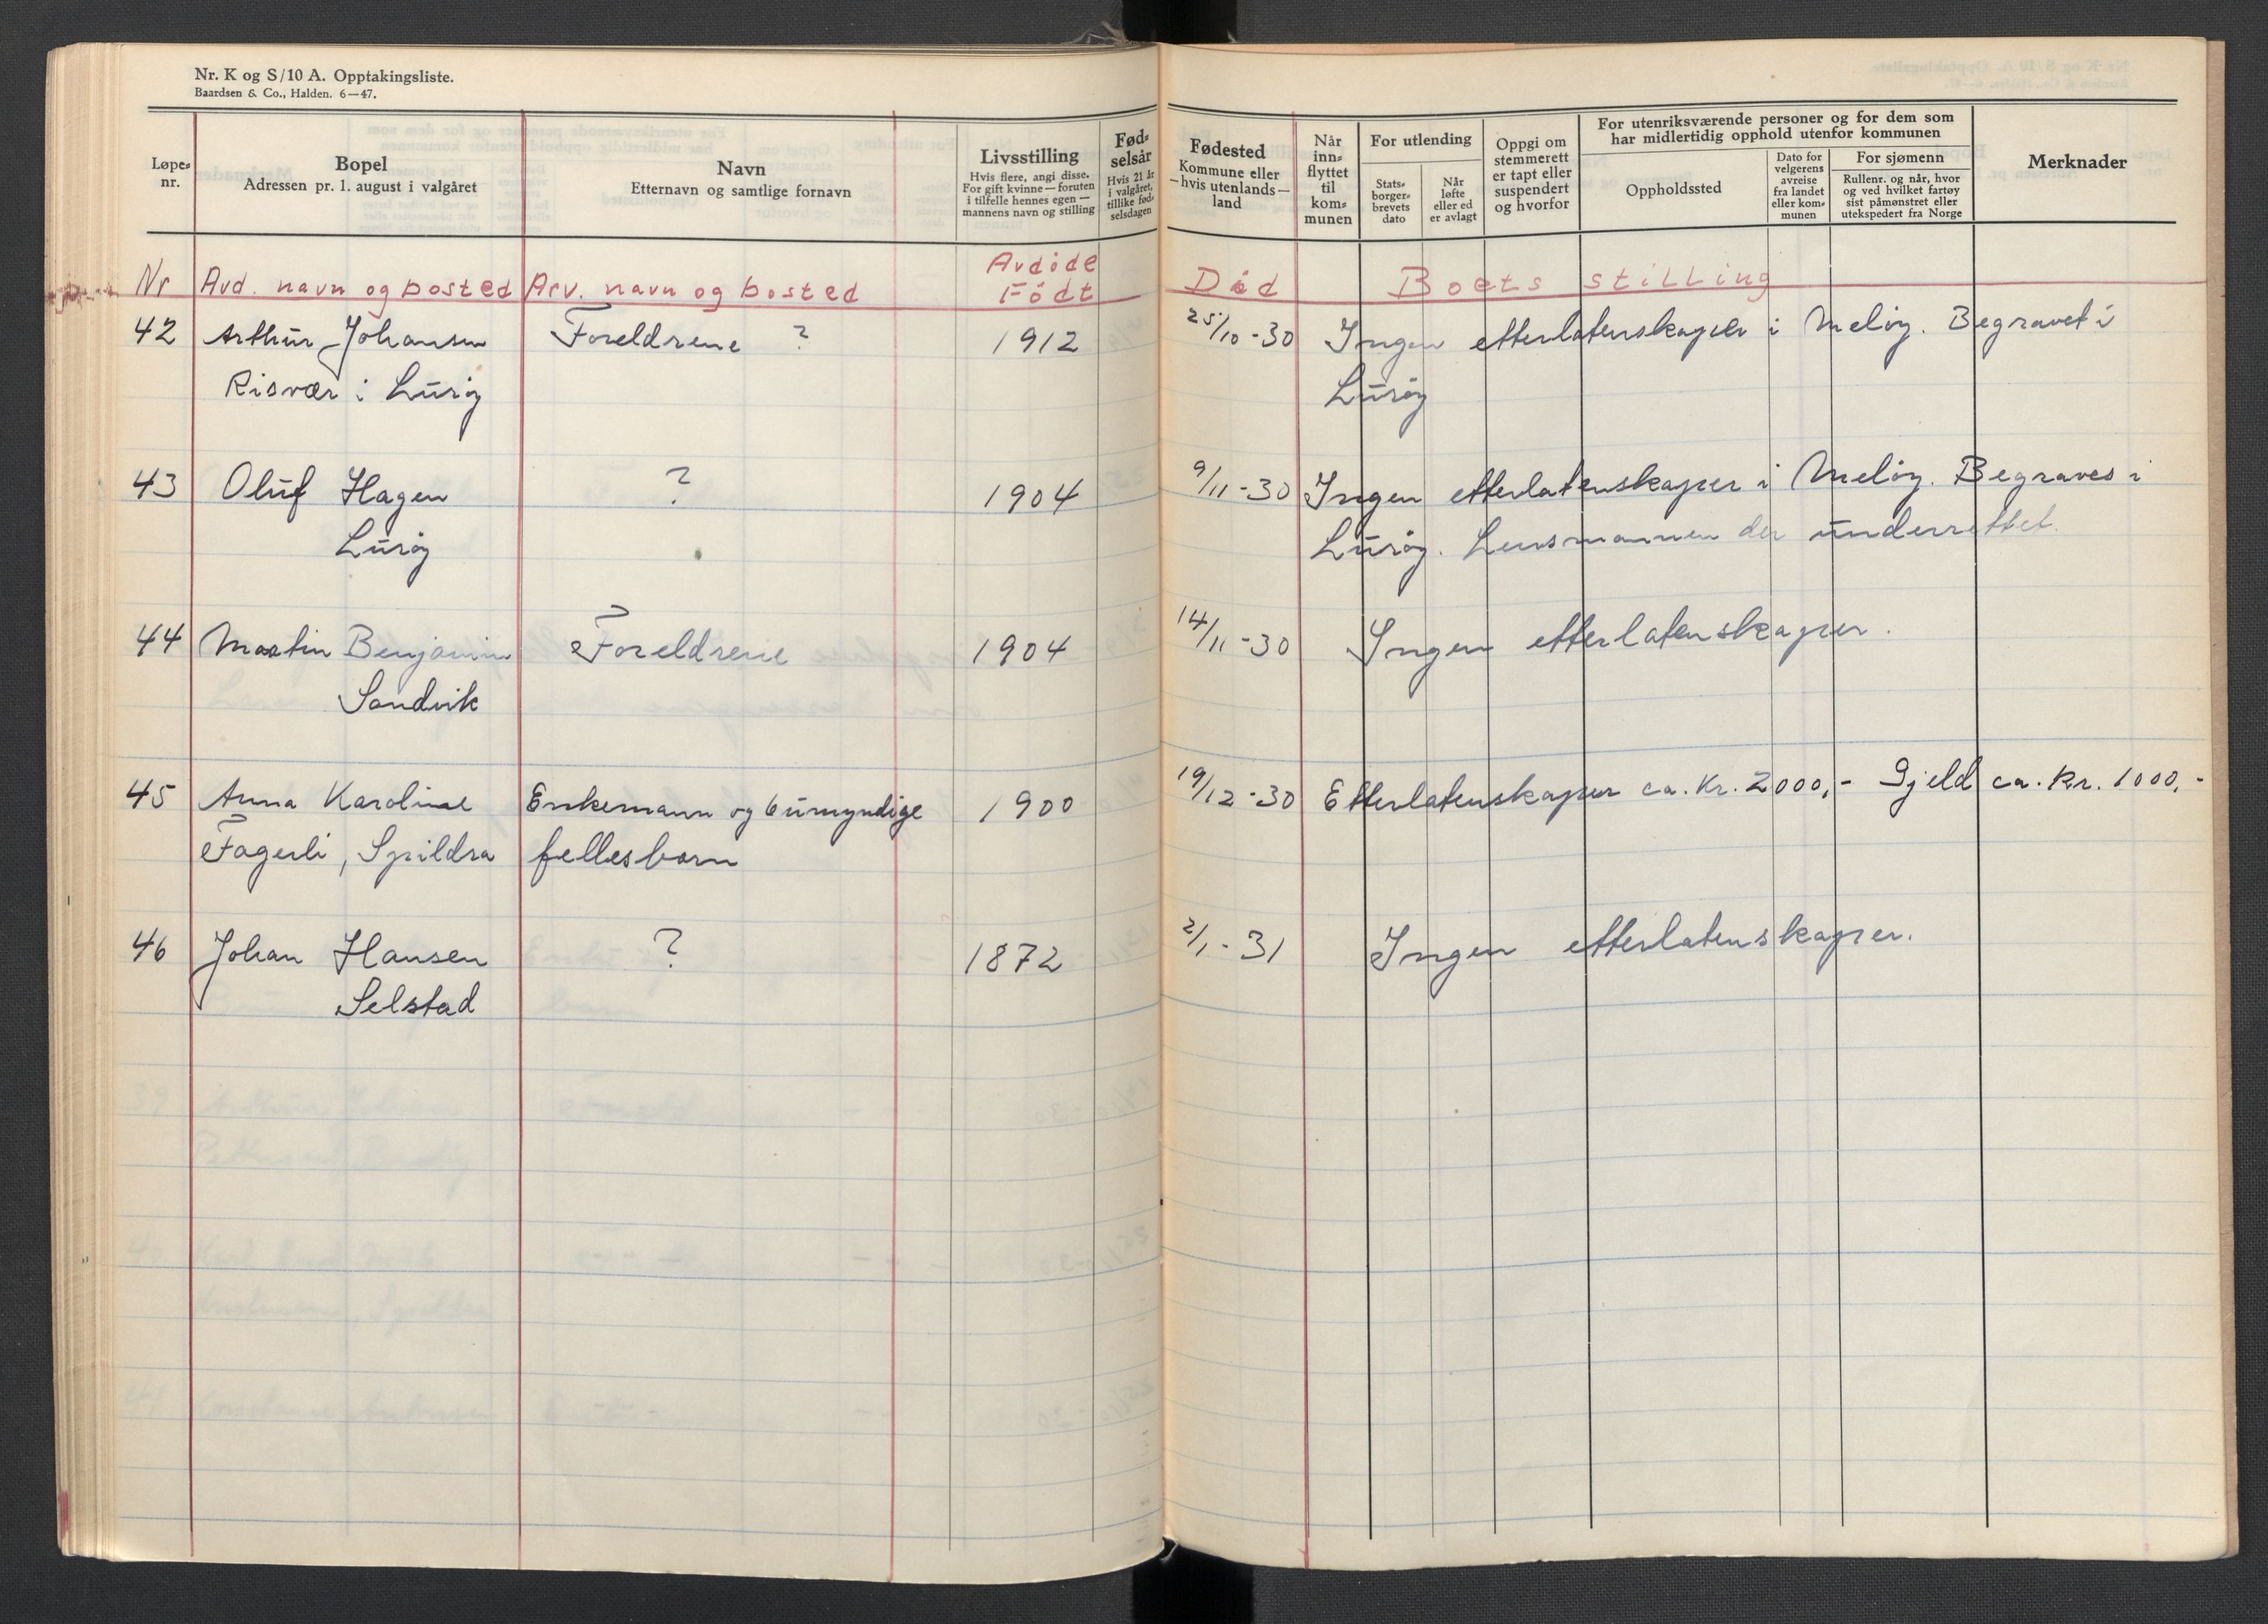 Nr. K og S/10 A. Opptakingsliste.
Baardsen & Co., Halden. 6—47.
Løpe-
nr.
Bopel
Adressen pr. 1. august i valgåret
Navn
Etternavn og samtlige fornavn
Livsstilling
Hvis flere, angi disse.
For gift kvinne — foruten
i tilfelle hennes egen —
mannens navn og stilling
Fød-
selsår
Hvis 21 år
i valgåret,
tillike fød-
selsdagen
Fødested
Kommune eller
— hvis utenlands —
land
Når
inn-
flyttet
til
kom-
munen
For utlending
Stats-
borger-
brevets
dato
Når
løfte
eller ed
er avlagt
Oppgi om
stemmerett
er tapt eller
suspendert
og hvorfor
For utenriksværende personer og for dem som
har midlertidig opphold utenfor kommunen
Oppholdssted
Dato for
velgerens
avreise
fra landet
eller kom-
munen
For sjømenn
Rullenr. og når, hvor
og ved hvilket fartøy
sist påmønstret eller
utekspedert fra Norge
Merknader
Nr Avd. navn og bosted Arv. navn og bosted Avdøde Født Død Boets stilling
42 Arthur Johansen Foreldrene ? 1912 25/10-30 Ingen etterlatenskaper i Meløy. Begravet i
Risvær i Lurøy Lurøy
43 Oluf Hagen ? 1904 9/11-30 Ingen etterlatenskaper i Meløy. Begraves i
Lurøy Lurøy. Lensmannen der underrettet.
44 Martin Benjamin Foreldrene 1904 14/11-30 Ingen etterlatenskaper.
Sandvik
45 Anna Karoline Enkemann og 6 umyndige 1900 19/12-30 Etterlatenskaper ca. kr. 2000,- Gjeld ca. kr. 1000,-
Fagerli, Spildra fellesbarn
46 Johan Hansen ? 1872 2/1-31 Ingen etterlatenskaper.
Selstad